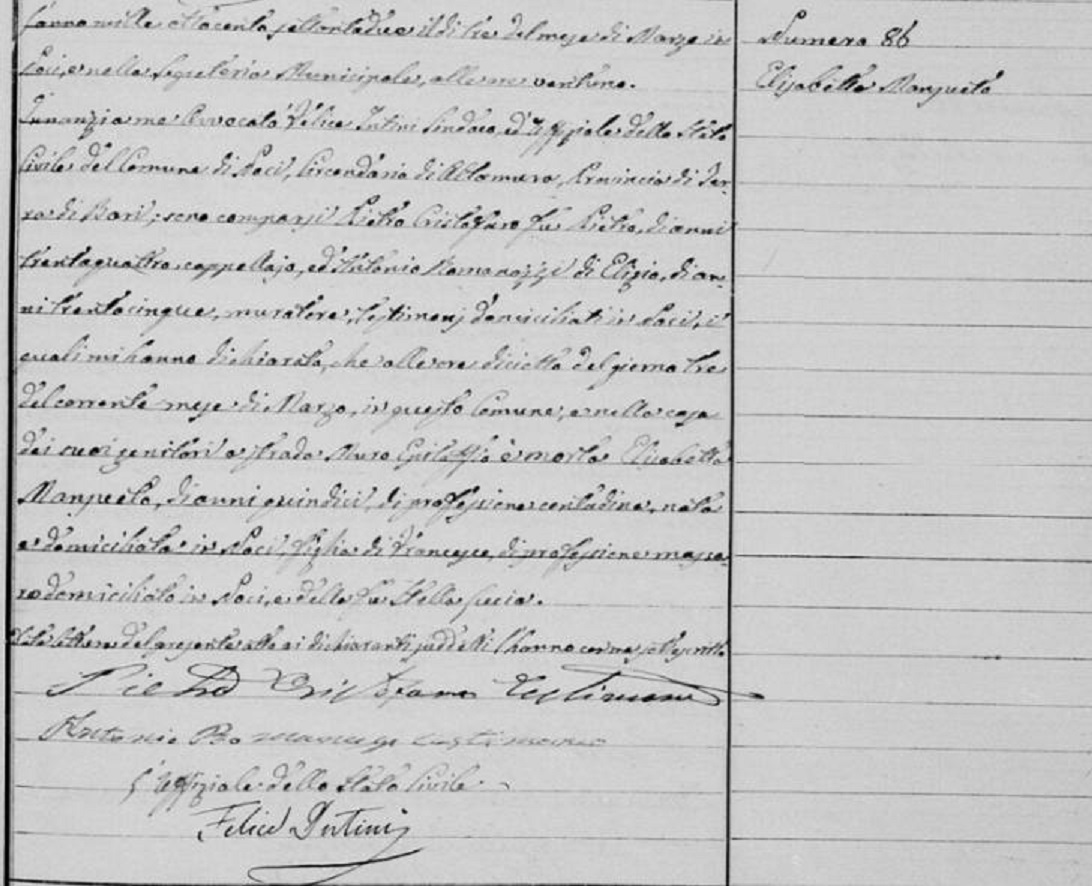 L'anno mille ottocento settantadue il dì tre del mese di Marzo in
Noci, e nella Segreteria Municipale, alle ore ventuno.
Innanzi a me Avvocato Felice Intini Sindaco, ed Uffiziale dello Stato
Civile del Comune di Noci, Circondario di Altamura, Provincia di Ter-
ra di Bari; sono comparsi Pietro Cristofaro fu Pietro, di anni
trentaquattro, cappellajo, ed Antonio Romanazzi di Eligio, di an-
ni trentacinque, muratore, testimonj domiciliati in Noci, i
quali mi hanno dichiarato, che alle ore diciotto del giorno tre
del corrente mese di Marzo, in questo Comune, e nella casa
dei suoi genitori a strada Muro è morta Elisabetta
Mansueto, di anni quindici, di professione contadina, nata
e domiciliata in Noci, figlia di Francesco, di professione massa-
ro domiciliato in Noci, e della fu Stella
Data lettura del presente atto ai dichiaranti suddetti l'hanno con me sottoscritto
Pietro Cristofaro Testimone
Antonio Romanazzi testimonio
L'Uffiziale dello Stato Civile
Felice Intini
Numero 86
Elisabetta Mansueto